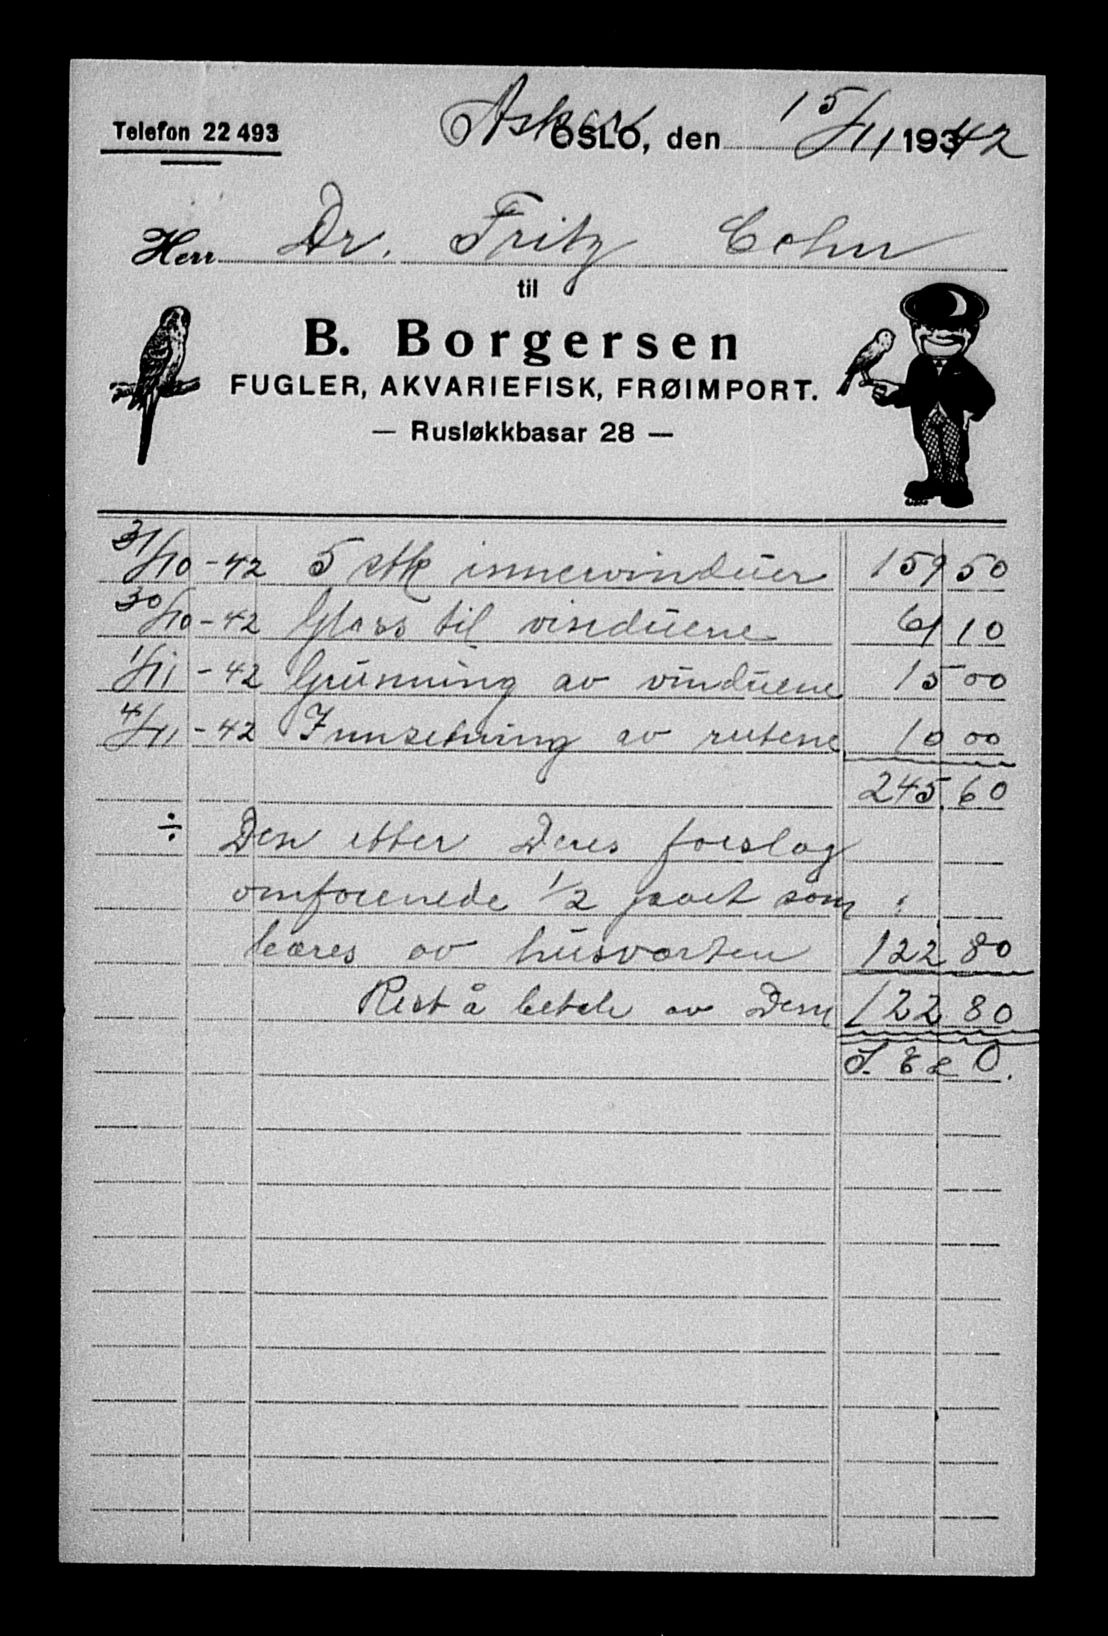 Telefon 22 493
Asker OSLO, den 15/11 193 42
Herr Dr. Fritz Cohn
til
B. Borgersen
FUGLER, AKVARIEFISK, FRØIMPORT.
— Rusløkkbasar 28 —
31/10 - 42 5 stk innervinduer 159 50
30/10 - 42 Glass til vinduene 61 10
1/11 - 42 Grunning av vinduene 15 00
4/11 - 42 Innsetning av rutene 10 00
245.60
÷ Den etter Deres forslag
omforenede 1/2 part som
bæres av husverten 122 80
Rest å betale av Dem 122 80
S. E & O.